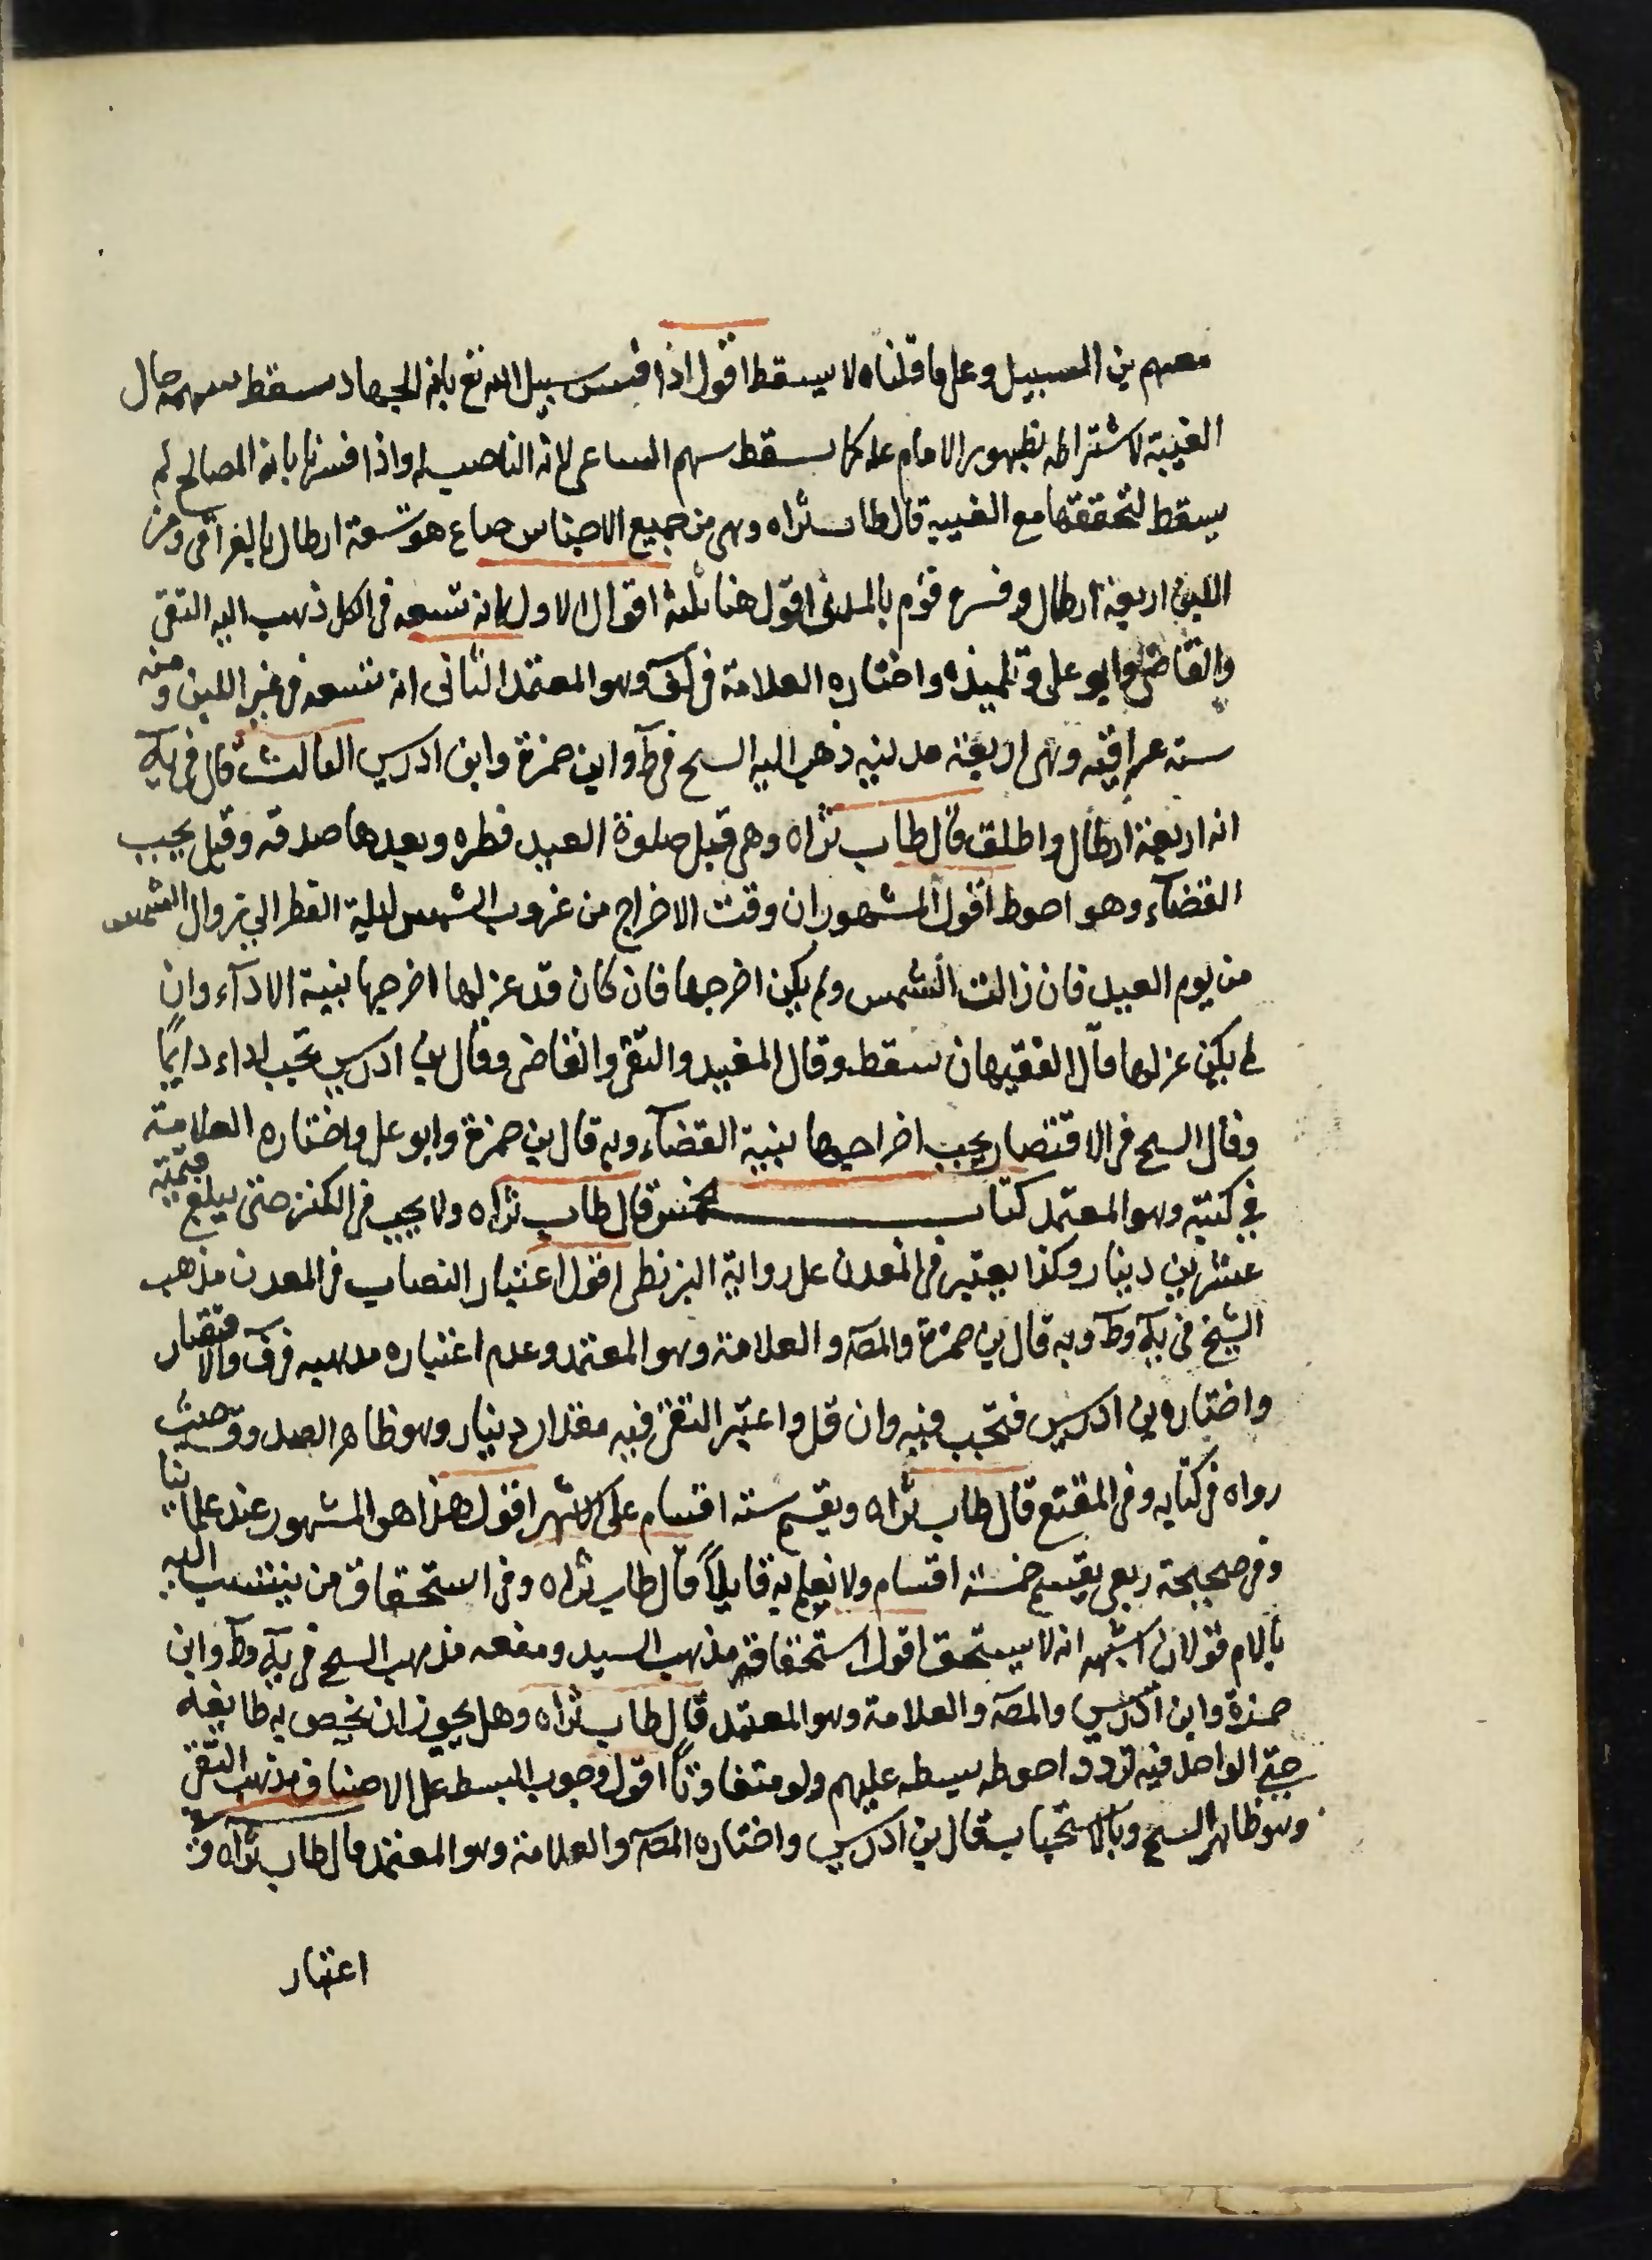 سهم بن السبيل وعلى ما قلناه لا يسقط اقول اذا فسر سبيل الله تع بانه الجهاد سقط سهمه حال
الغيبة لاشتراطه بظهور الامام عله كما يسقط سهم الساعى لانه الناصب له واذا فسرنا بانه المصالح لم
يسقط لتحققها مع الغيبة قال طاب ثراه وهى من جميع الاجناس صاع هو تسعة ارطال بالعراقى ومن
اللبن اربعة ارطال وفسره قوم بالمدنى اقول هنا ثلثة اقوال الاول انه تسعه فى الكل ذهب اليه التقى
والقاضى وابو على وتلميذه واختاره العلامة فى لف وهو المعتمد الثانى انه تسعه فى غير اللبن ومنه
سته عراقيه وهى اربعة مدنيه ذهب اليه السح فى ط وابن حمزة وابن ادريس الثالث قال فى يه
انه اربعة ارطال واطلق قال طاب ثراه وهى قبل صلوة العيد فطره وبعدها صدقه وقيل يجب
القضآء وهو احوط اقول المشهور ان وقت الاخراج من غروب الشمس ليلة الفطر الى زوال الشمس
من يوم العيد فان زالت الشمس ولم يكن اخرجها فان كان قد عزلها اخرجها بنية الادآء وان
لم يكن عزلها قال الفقيهان سقط وقال المفيد والتقى والقاضى وقال بن ادريس تجب اداء دايمًا
وقال السح فى الاقتصار يجب اخراجها بنية القضآء وبه قال بن حمزة وابو على واختاره العلامة
فى كتبه وهو المعتمد كتاب الخمس قال طاب ثراه ولا يجب فى الكنز حتى يبلغ قيمته
عشرين دينار وكذا يعتبر فى المعدن على رواية البزنطى اقول اعتبار النصاب فى المعدن مذهب
الشيخ فى يه وط وبه قال بن حمزة والمصه والعلامة وهو المعتمد وعدم اعتباره مذهبه فى ف والاقتصار
واختاره بن ادريس فتجب فيه وان قل واعتبر التقى فيه مقدار دينار وهو ظاهر الصدوق حيث
رواه فى كتابه وفى المقنع قال طاب ثراه ويقسم ستة اقسام على الاشهر اقول هذا هو المشهور عند علمائنا
وفى صحيحة ربعى يقسم خمسة اقسام ولا نعلم به قايلاً قال طاب ثراه وفى استحقاق من ينتسب اليه
بالام قولان اشبهه انه لا يستحق اقول استحقاقه مذهب السيد ومنعه مذهب السح فى يه وط وابن
حمزة وابن ادريس والمصه والعلامة وهو المعتمد قال طاب ثراه وهل يجوز ان يخص به طايفة
حتى الواحد فيه تردد احوطه بسطه عليهم ولو متفاوتاً اقول وجوب البسط على الاصناف مذهب التقى
وهو ظاهر السح وبالاستحباب قال بن ادريس واختاره المصه والعلامة وهو المعتمد قال طاب ثراه وفى
اعتبار